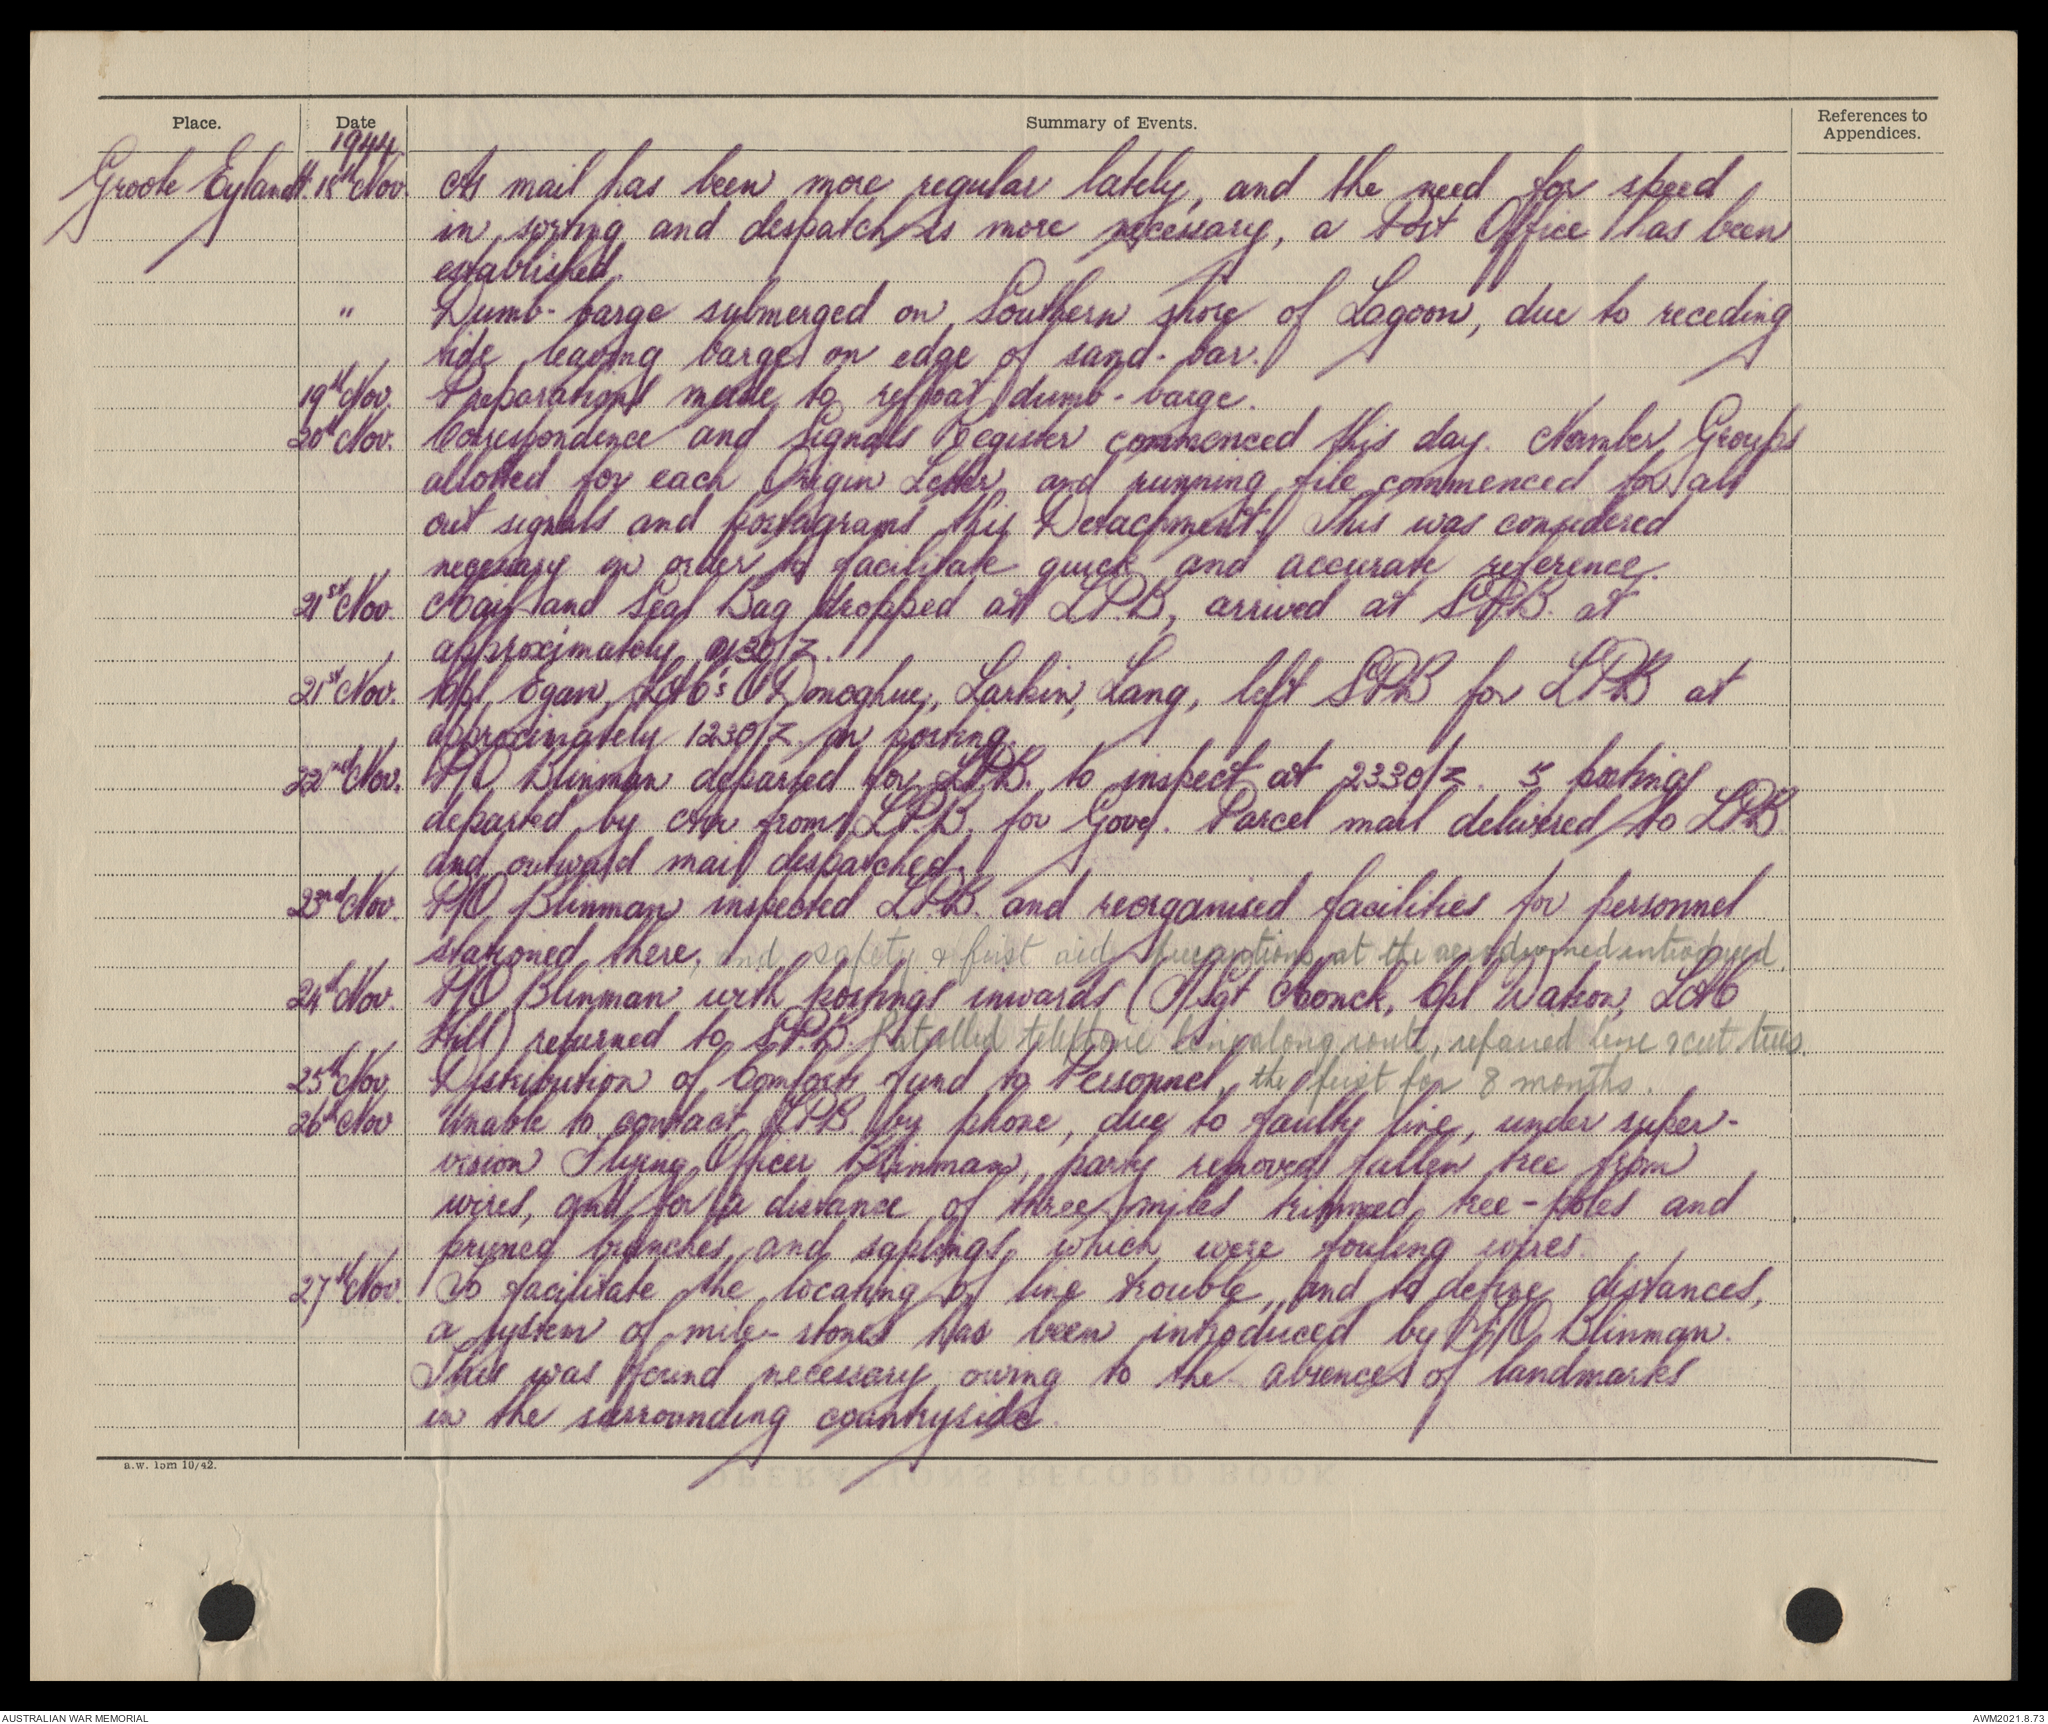 Place. Date Summary of Events. References to Appendices.
1944
Groote Eylandt. 18th Nov. As mail has been more regular lately, and the need for speed
in sorting and despatch is more necessary, a Post Office has been
established.
" Dumb-barge submerged on Southern shore of Lagoon, due to receding
tide leaving barge on edge of sand-bar.
19th Nov. Preparations made to refloat dumb-barge.
20th Nov. Correspondence and Signals Register commenced this day. Number Groups
allotted for each Origin Letter, and running file commenced for all
out signals and postagrams this Detachment. This was considered
necessary in order to facilitate quick and accurate reference.
21st Nov. Mail and Seal Bag dropped at L.P.B, arrived at S.P.B. at
approximately 0130/Z.
21st Nov. Cpl Egan, LAC's O'Donoghue, Larkin, Lang, left SPB for LPB at
approximately 1230/Z on posting.
22nd Nov. F/O Blinman departed for L.P.B. to inspect at 2330/Z. 5 postings
departed by Air from L.P.B. for Gove. Parcel mail delivered to LPB
and outward mail despatched.
23rd Nov. F/O Blinman inspected L.P.B. and reorganised facilities for personnel
stationed there, and safety & first aid precautions at the aerodrome introduced.
24th Nov. F/O Blinman with postings inwards (F/Sgt Monck, Cpl Watson, LAC
Hill) returned to S.P.B. Patrolled telephone line along route, repaired line & cut trees.
25th Nov. Distribution of Comforts fund to Personnel, the first for 8 months.
26th Nov Unable to contact L.P.B. by phone, due to faulty line, under super-
vision Flying Officer Blinman, party removed fallen tree from
wires, and for a distance of three miles trimmed tree-poles and
pruned branches and saplings which were fouling wires.
27th Nov. To facilitate the locating of line trouble, and to define distances,
a system of mile-stones has been introduced by F/O Blinman.
This was found necessary owing to the absence of landmarks
in the surrounding countryside.
a.w. 15m 10/42.
AUSTRALIAN WAR MEMORIAL AWM2021.8.73